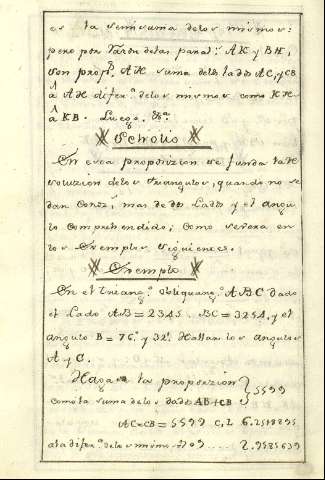 es la semisuma de los mismos:
pero por razon de las paral.s AK y BH,
son prop.s AH suma de los lados AC, y CB
à AH difer.a de los mismos como KH
à KB. Luego. &.a
Scholio
En esta proposizion se funda la Re
soluzion de los triangulos, quando no se
dan conoz.s mas de dos Lados y el Angu
lo comprehendido; como se verà en
los Exemplos siguientes.
Exemplo
En el triang.o obliquang.o ABC dado
el Lado AB = 2345. BC = 3254, y el
angulo B = 76.° y 32'. Hallar los angulos
A y C.
Hagase la proposizion
como la suma de los lados AB + CB } 5599
AC + CB = 5599 C. L. 6.2518895
a la difer.a de los mismos 909 ..... 2.9585639